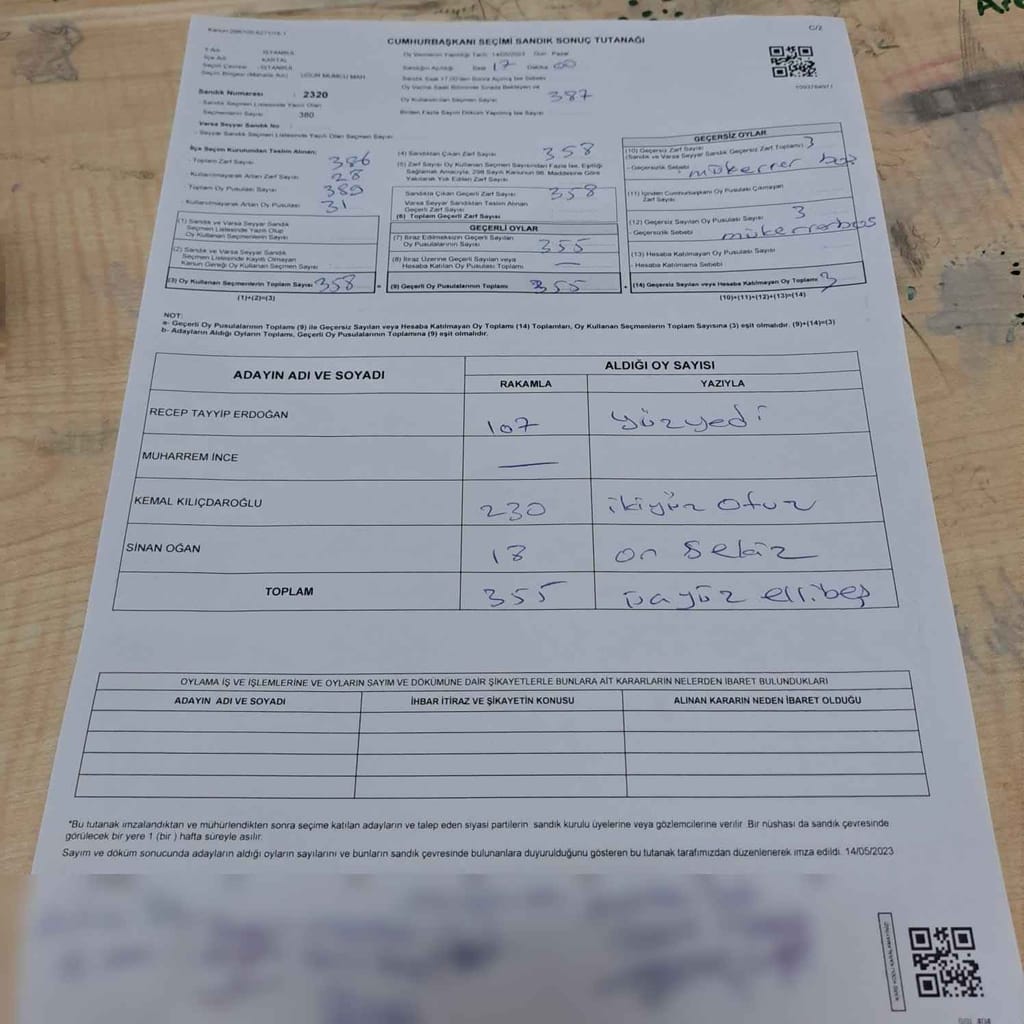 C/2
CUMHURBAŞKANI SEÇİMİ SANDIK SONUÇ TUTANAĞI
İl Adı : İSTANBUL
İlçe Adı : KARTAL
Seçim Çevresi : İSTANBUL
Seçim Bölgesi (Mahalle Adı) : UĞUR MUMCU MAH.
Oy Vermenin Yapıldığı Tarih: 14/05/2023 Gün: Pazar
Sandığın Açıldığı Saat 17 Dakika 00
Sandık Saat 17.00'den Sonra Açılmış İse Sebebi
Oy Verme Saati Bitiminde Sırada Bekleyen ve
Oy Kullandırılan Seçmen Sayısı 387
Birden Fazla Sayım Döküm Yapılmış İse Sayısı
Sandık Numarası : 2320
- Sandık Seçmen Listesinde Yazılı Olan
Seçmenlerin Sayısı : 380
Varsa Seyyar Sandık No :
- Seyyar Sandık Seçmen Listesinde Yazılı Olan Seçmen Sayısı
İlçe Seçim Kurulundan Teslim Alınan;
- Toplam Zarf Sayısı 386
- Kullanılmayarak Artan Zarf Sayısı 28
- Toplam Oy Pusulası Sayısı 389
- Kullanılmayarak Artan Oy Pusulası Sayısı 31
(1) Sandık ve Varsa Seyyar Sandık
Seçmen Listesinde Yazılı Olup
Oy Kullanan Seçmenlerin Sayısı
(2) Sandık ve Varsa Seyyar Sandık
Seçmen Listesinde Kayıtlı Olmayan
Kanun Gereği Oy Kullanan Seçmen Sayısı
(3) Oy Kullanan Seçmenlerin Toplam Sayısı 358
(1)+(2)=(3)
(4) Sandıktan Çıkan Zarf Sayısı 358
(5) Zarf Sayısı Oy Kullanan Seçmen Sayısından Fazla İse, Eşitliği
Sağlamak Amacıyla, 298 Sayılı Kanunun 98. Maddesine Göre
Yakılarak Yok Edilen Zarf Sayısı
Sandıkta Çıkan Geçerli Zarf Sayısı 358
Varsa Seyyar Sandıktan Teslim Alınan
Geçerli Zarf Sayısı
(6) Toplam Geçerli Zarf Sayısı
GEÇERLİ OYLAR
(7) İtiraz Edilmeksizin Geçerli Sayılan
Oy Pusulalarının Sayısı 355
(8) İtiraz Üzerine Geçerli Sayılan veya
Hesaba Katılan Oy Pusulası Toplamı —
= (9) Geçerli Oy Pusulalarının Toplamı 355
GEÇERSİZ OYLAR
(10) Geçersiz Zarf Sayısı 3
(Sandık ve Varsa Seyyar Sandık Geçersiz Zarf Toplamı)
- Geçersizlik Sebebi : mükerrer bos
(11) İçinden Cumhurbaşkanı Oy Pusulası Çıkmayan
Zarf Sayısı
(12) Geçersiz Sayılan Oy Pusulası Sayısı 3
- Geçersizlik Sebebi mükerrerbos
(13) Hesaba Katılmayan Oy Pusulası Sayısı
- Hesaba Katılmama Sebebi
+ (14) Geçersiz Sayılan veya Hesaba Katılmayan Oy Toplamı 3
(10)+(11)+(12)+(13)=(14)
NOT:
a- Geçerli Oy Pusulalarının Toplamı (9) ile Geçersiz Sayılan veya Hesaba Katılmayan Oy Toplamı (14) Toplamları, Oy Kullanan Seçmenlerin Toplam Sayısına (3) eşit olmalıdır. (9)+(14)=(3)
b- Adayların Aldığı Oyların Toplamı, Geçerli Oy Pusulalarının Toplamına (9) eşit olmalıdır.
ADAYIN ADI VE SOYADI ALDIĞI OY SAYISI
RAKAMLA YAZIYLA
RECEP TAYYİP ERDOĞAN 107 yüzyedi
MUHARREM İNCE —
KEMAL KILIÇDAROĞLU 230 ikiyüz otuz
SİNAN OĞAN 18 on sekiz
TOPLAM 355 üçyüz ellibeş
OYLAMA İŞ VE İŞLEMLERİNE VE OYLARIN SAYIM VE DÖKÜMÜNE DAİR ŞİKAYETLERLE BUNLARA AİT KARARLARIN NELERDEN İBARET BULUNDUKLARI
ADAYIN ADI VE SOYADI İHBAR İTİRAZ VE ŞİKAYETİN KONUSU ALINAN KARARIN NEDEN İBARET OLDUĞU
*Bu tutanak imzalandıktan ve mühürlendikten sonra seçime katılan adayların ve talep eden siyasi partilerin sandık kurulu üyelerine veya gözlemcilerine verilir. Bir nüshası da sandık çevresinde
görülecek bir yere 1 (bir ) hafta süreyle asılır.
Sayım ve döküm sonucunda adayların aldığı oyların sayılarını ve bunların sandık çevresinde bulunanlara duyurulduğunu gösteren bu tutanak tarafımızdan düzenlenerek imza edildi. 14/05/2023